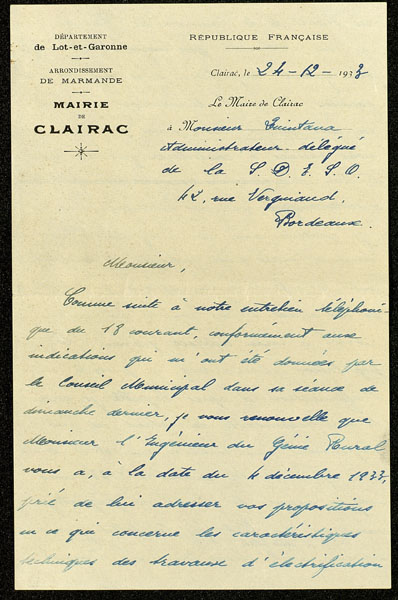 DÉPARTEMENT
de Lot-et-Garonne
ARRONDISSEMENT
DE MARMANDE
MAIRIE
DE
CLAIRAC
RÉPUBLIQUE FRANÇAISE
Clairac, le 24-12-1933
Le Maire de Clairac
à Monsieur Quintana
Administrateur-délégué
de la S.D.E.S.O.
42, rue Vergniaud,
Bordeaux.
Monsieur,
Comme suite à notre entretien téléphoni-
que du 18 courant, conformément aux
indications qui m'ont été données par
le Conseil Municipal dans sa séance de
dimanche dernier, je vous renouvelle que
Monsieur l'Ingénieur du Génie Rural
vous a, à la date du 4 décembre 1933,
prié de lui adresser vos propositions
en ce qui concerne les caractéristiques
techniques des travaux d'électrification